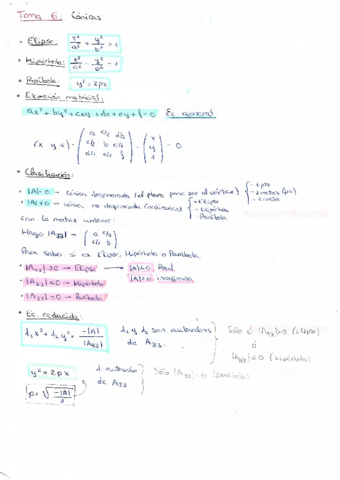 Tema 6: Cónicas
• Elipse: x²/a² + y²/b² = 1
• Hipérbola: x²/a² - y²/b² = 1
• Parábola: y² = 2px
• Expresión matricial:
ax² + by² + cxy + dx + ey + f = 0 Ec general
(x y 1) · ( a c/2 d/2
c/2 b e/2
d/2 e/2 f ) · ( x
y
1 ) = 0
• Clasificación:
• |A| = 0 → cónica degenerada (el plano pasa por el vértice) - 1 pto
- 2 rectas
- 1 recta
• |A| ≠ 0 → cónica no degenerada (ordinaria) - Elipse
- Hipérbola
- Parábola
con la matriz anterior:
Hago |A33| → ( a c/2
c/2 b )
Para saber si es Elipse, Hipérbola o Parábola.
• |A33| > 0 → Elipse → |A| < 0 Real
|A| > 0 imaginaria
• |A33| < 0 → Hipérbola
• |A33| = 0 → Parábola
• Ec. reducida:
λ1 x² + λ2 y² = -|A| / |A33| λ1 y λ2 son autovalores de A33. Sólo si |A33| > 0 (elipse)
ó
|A33| < 0 (hipérbola)
y² = 2px λ autovalor de A33 Sólo |A33| = 0 (parábola)